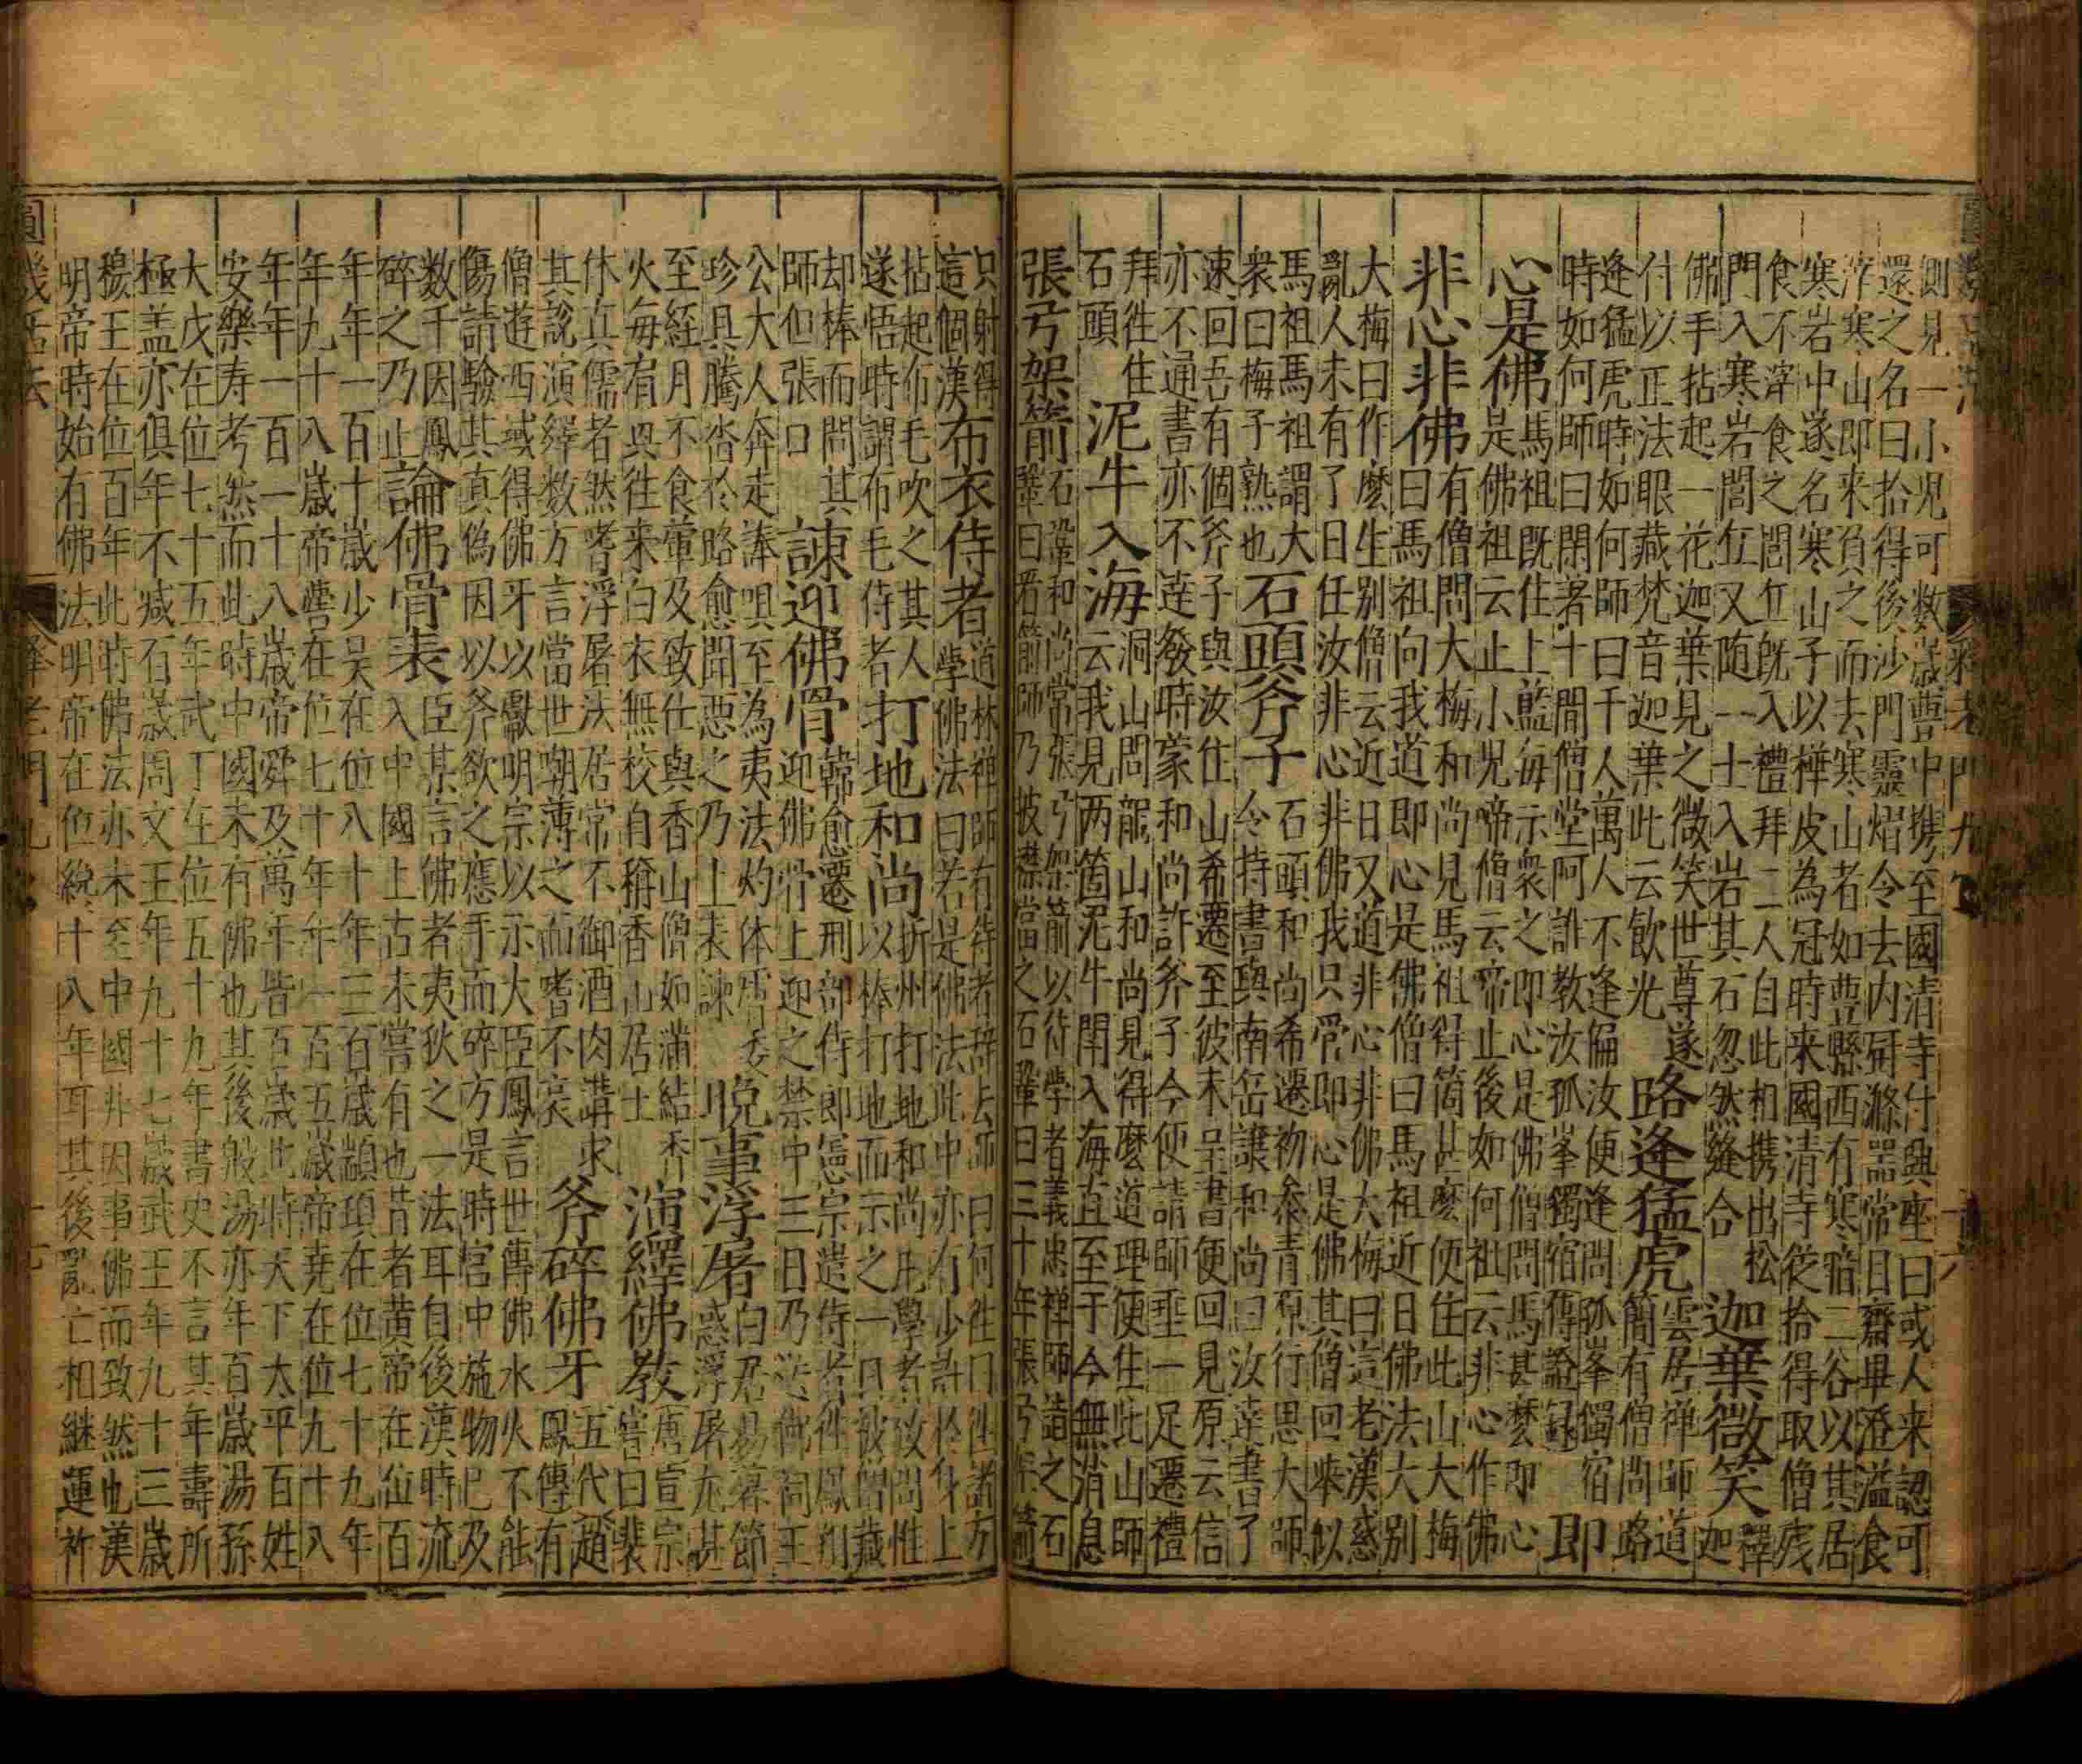 圓機活法 釋老門九巻 十六
側見一小児可数歳豊中携至國清寺付與座曰或人来認可
還之名曰拾得後沙門靈熠令去内厨滌噐常日齋畢澄溢食
滓寒山即来負之而去寒山者如豊縣西有寒暗二谷以其居
寒岩中遂名寒山子以樺皮為冠時来國清寺從拾得取僧残
食不滓食之閭丘既入禮拜二人自此相携出松
門入寒岩閭丘又随一士入岩其石忽然縫合
迦葉微笑
釋
迦
佛手拈起一花迦葉見之微笑世尊遂
付以正法眼藏梵音迦葉此云飲光
路逢猛虎
雲居禅師道
簡有僧問路
逢猛虎時如何師曰千人萬人不逢偏汝便逢問孤峯獨宿
時如何師曰閑著十間僧堂阿誰教汝孤峯獨宿傳證録
即
心是佛
馬祖既住上藍海示衆之即心是佛僧問馬甚麽即心
是佛祖云止小児啼僧云啼止後如何祖云非心作佛
非心非佛
有僧問大梅和尚見馬祖得箇甚麽便住此山大梅
曰馬祖向我道即心是佛僧曰馬祖近日佛法大别
大梅曰作麽生别僧云近日又道非心非佛大梅曰這老漢惑
亂人未有了日任汝非心非佛我只管即心是佛其僧回㖿似
馬祖馬祖謂大
衆曰梅子熟也
石頭斧子
石頭和尚希遷初叅青原行思大師
令持書與南岳讓和尚曰汝逹書了
速回吾有個斧子與汝住山希遷至彼未呈書便回見原云信
亦不通書亦不逹發時蒙和尚許斧子今便請師垂一足遷禮
拜徃住
石頭
泥牛入海
洞山問龍山和尚見得麽道理便住此山師
云我見两箇泥牛閗入海直至于今無消息
張弓架箭
石鞏和尚常張弓架箭以待學者義忠禅師詣之石
鞏曰看箭師乃披襟當之石鞏曰三十年張弓架箭
只射得
這個漢
布衣侍者
道林禅師有侍者辞去師曰何徃曰徃諸方
學佛法曰若是佛法此中亦有少許於身上
拈起布毛吹之其人
遂悟時謂布毛侍者
打地和尚
折州打地和尚凡學者致問惟
以棒打地而示之一日被僧藏
却棒而問其
師但張口
諫迎佛骨
韓愈遷刑部侍郎憲宗遣侍者徃鳳翔
迎佛骨上迎之禁中三日乃送佛祠王
公大人奔走諱咀至為夷法灼体膚委
珍具騰沓於路愈聞惡之乃上表諫
晚事浮屠
白居易暮節
惑浮屠尤甚
至経月不食葷及致仕與香山僧如滿結香
火每宥與徃来白衣無校自稱香山居士
演繹佛教
唐宣宗
嘗曰裴
休真儒者然嗜浮屠法居常不御酒肉講求
其說演繹数方言當世嘲薄之而嗜不哀
斧碎佛牙
五代趙
鳳傳有
僧遊西域得佛牙以獻明宗以示大臣鳳言世傳佛水火不能
傷請驗其真偽因以斧欲之應手而碎方是時宮中施物巳及
数千因鳳
碎之乃止
論佛骨表
臣某言佛者夷狄之一法耳自後漢時流
入中國上古未嘗有也昔者黄帝在位百
年年一百十歳少昊在位八十年年三百歳顓頊在位七十九年
年九十八歳帝嚳在位七十年年一百五歳帝尭在位九十八
年年一百一十八歳帝舜及萬年皆百歳也時天下太平百姓
安樂寿考然而此時中國未有佛也其後殷湯亦年百歳湯孫
大戊在位七十五年武丁在位五十九年書史不言其年壽所
極盖亦俱年不减石歳周文王年九十七歳武王年九十三歳
穆王在位百年此時佛法亦未至中國非因事佛而致然也漢
明帝時始有佛法明帝在位纔十八年耳其後亂亡相継運祚
圓機活法 釋老門九巻 十七